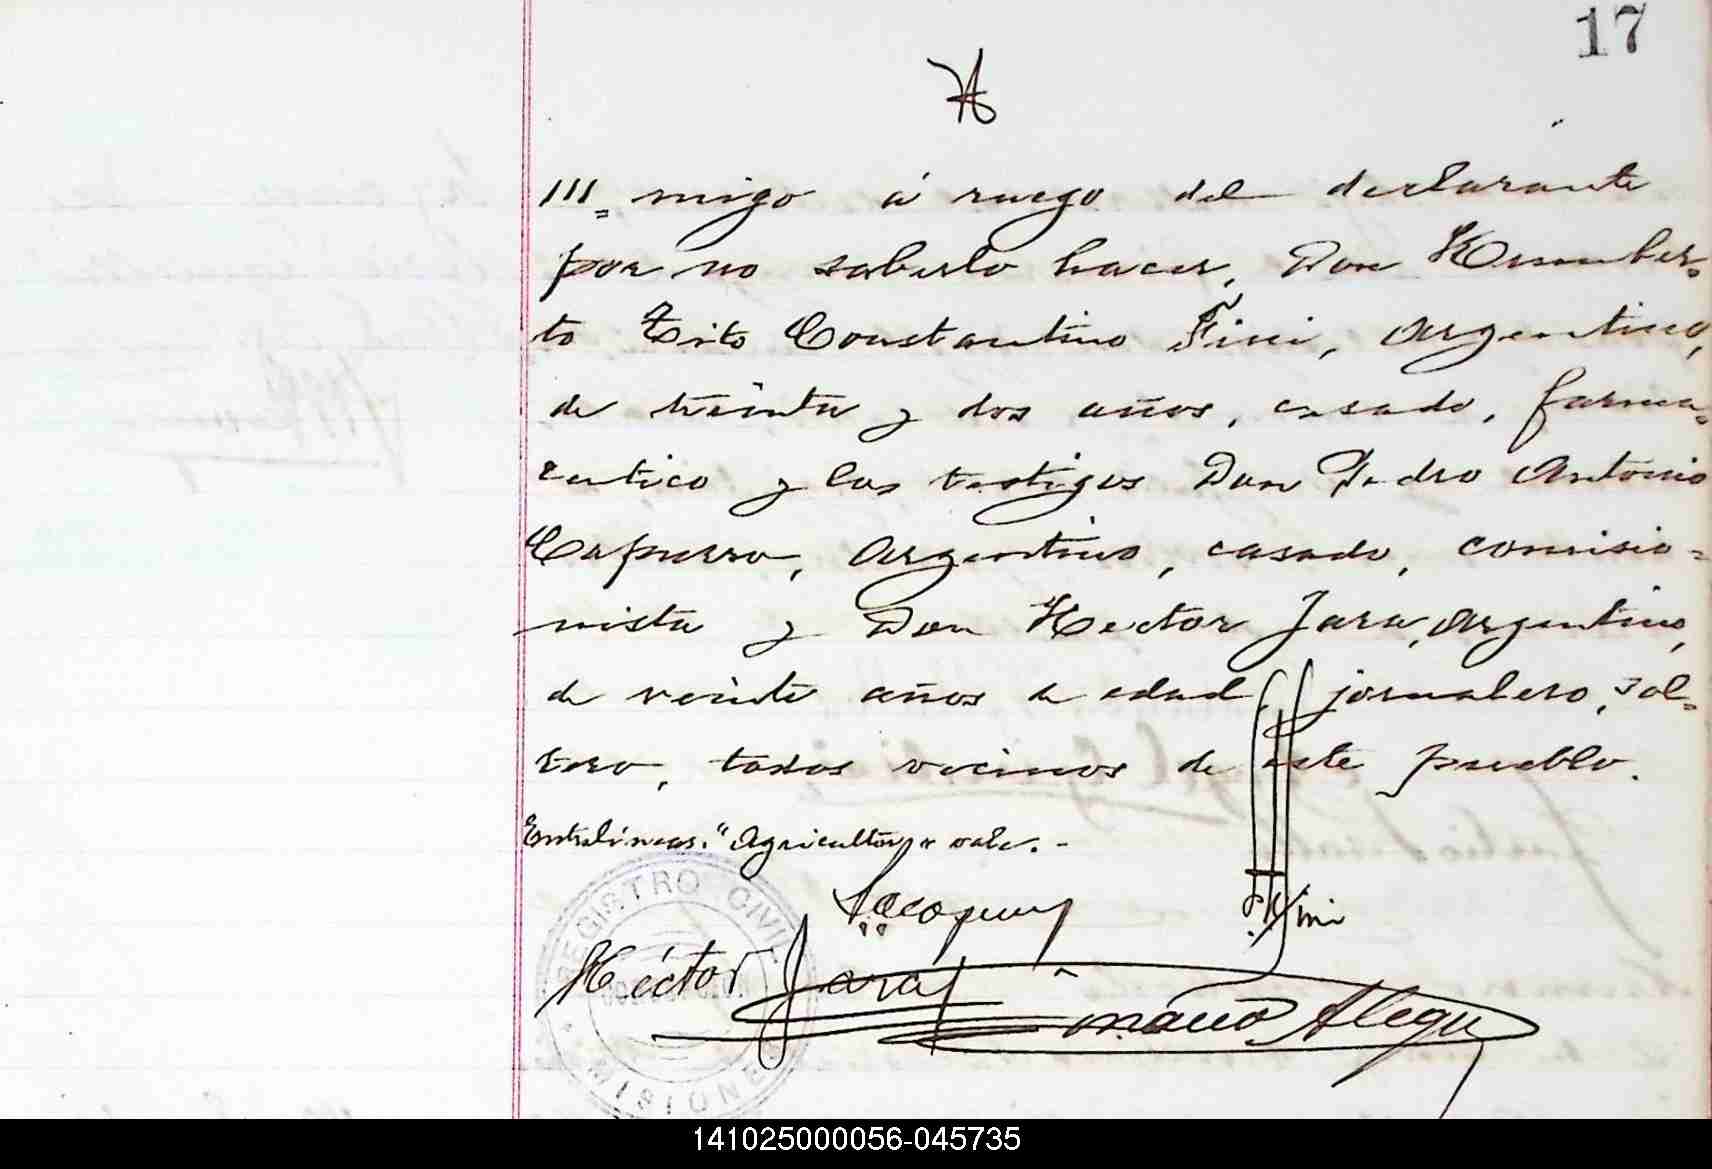 17
III= migo á ruego del declarante
por no saberlo hacer, Don Humber=
to Tito Constantino Fini, Argentino,
de treinta y dos años, casado, farma=
ceutico y los testigos Don Pedro Antonio
Capurro, Argentino, casado, comisio=
nista y Don Hector Jara, Argentino,
de veinte años de edad, jornalero, sol=
tero, todos vecinos de este pueblo.
Entrelíneas: "Agricultor" vale.-
Fini
Héctor Jara
Alegre
REGISTRO CIVIL
MISIONES
141025000056-045735